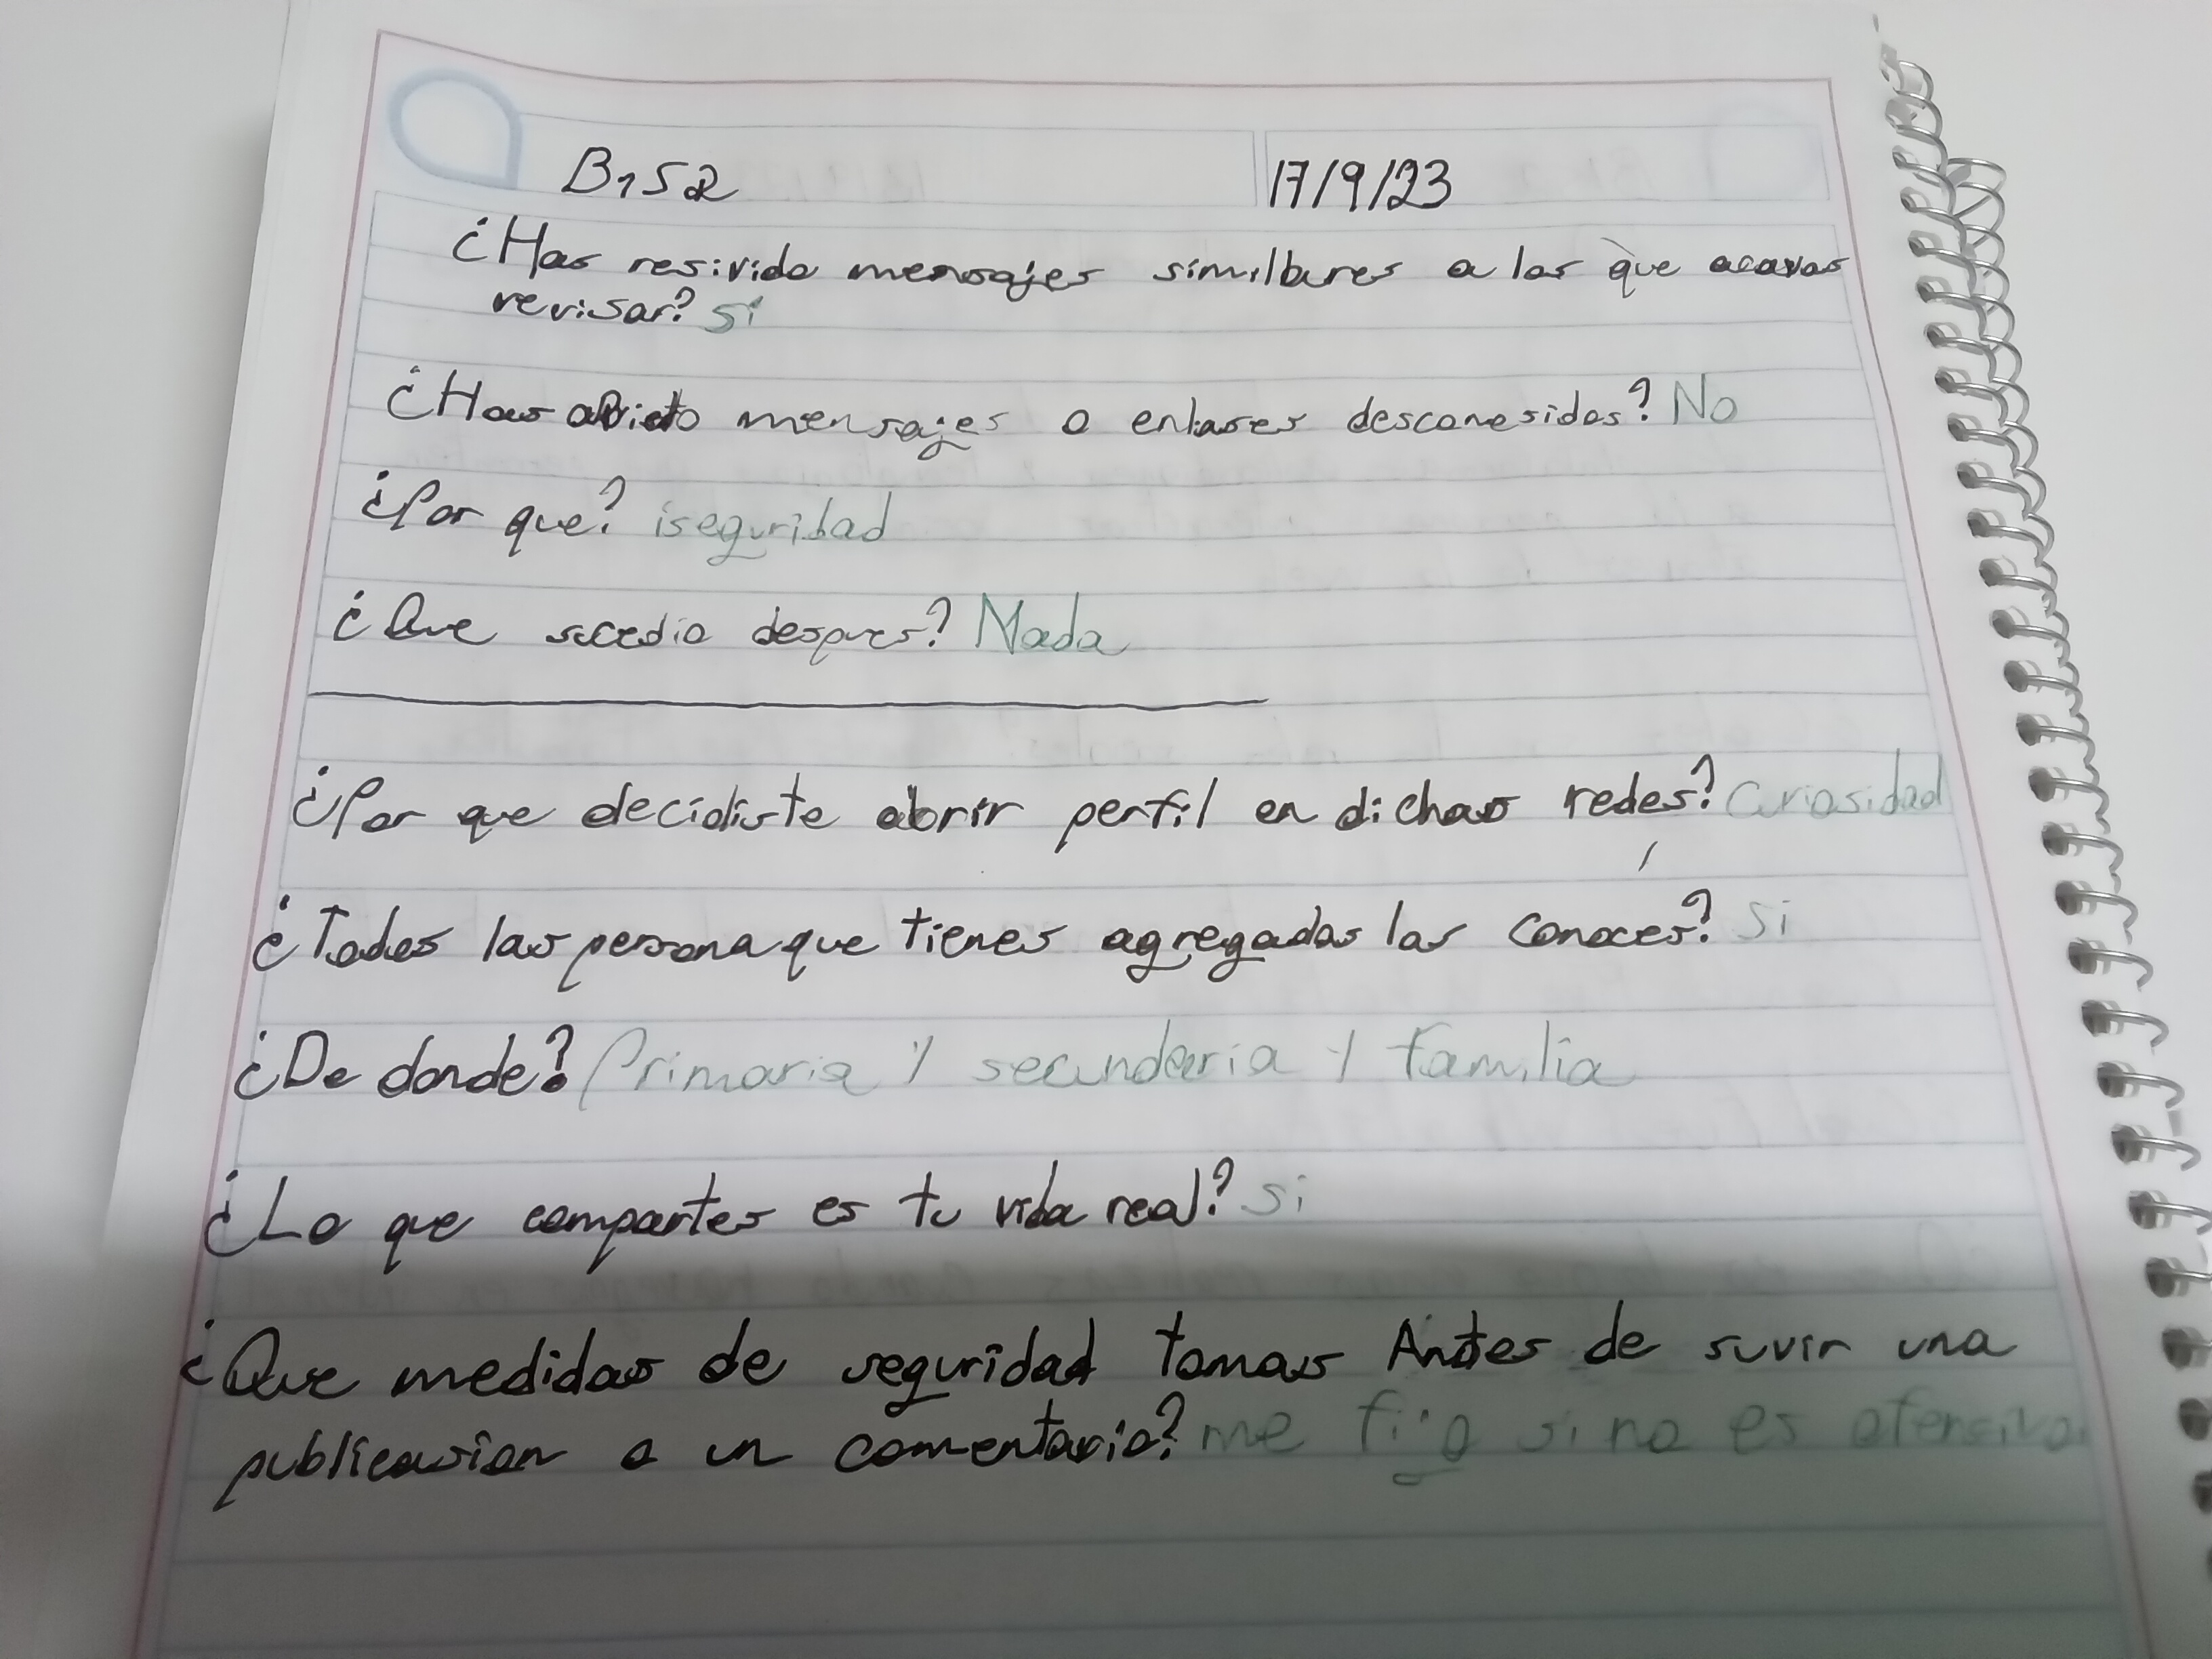 B1S2 17/9/23
¿Has resivido mensajes similares a los que acavas
revisar? si
¿Has abieto mensajes o enlases desconesidos? No
¿Por que? iseguridad
¿Que sucedio despues? Nada
¿Por que decidiste abrir perfil en dichas redes? Curiosidad
¿Todes las persona que tienes agregadas las conoces? Si
¿De donde? Primaria y secundaria y familia
¿Lo que compartes es tu vida real? Si
¿Que medidas de seguridad tomas Antes de suvir una
publicasion o un comentario? me fijo si no es ofensivo